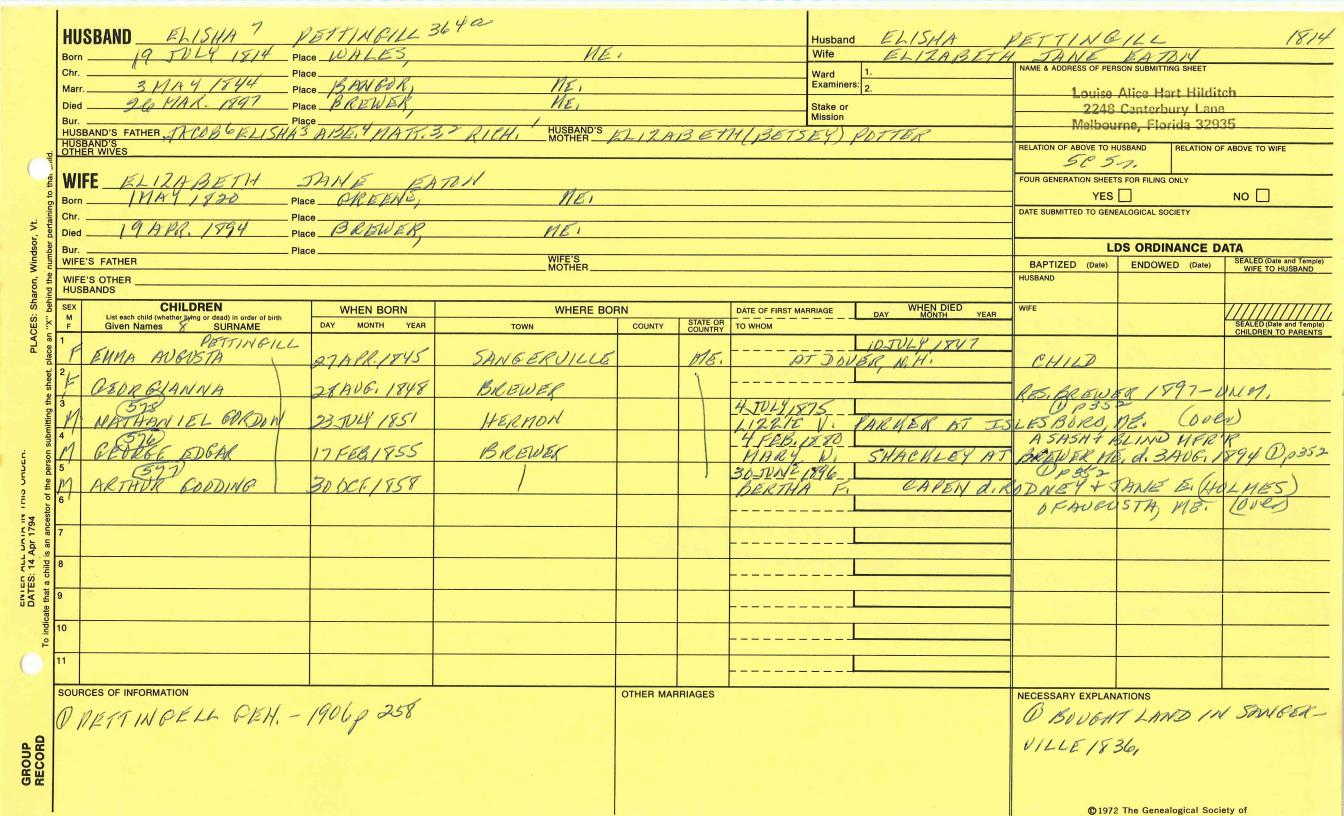 HUSBAND ELISHA 7 PETTINGILL 364a
Born 19 JULY 1814 Place WALES, ME.
Chr. Place
Marr. 3 MAY 1844 Place BANGOR, ME.
Died 26 MAR. 1897 Place BREWER, ME.
Bur. Place
HUSBAND'S FATHER JACOB 6 ELISHA 5 ABE. 4 MATT. 3,2 RICH. 1 HUSBAND'S MOTHER ELIZABETH (BETSEY) POTTER
HUSBAND'S OTHER WIVES
Husband ELISHA PETTINGILL 1814
Wife ELIZABETH JANE EATON
Ward Examiners: 1.
2.
Stake or Mission
NAME & ADDRESS OF PERSON SUBMITTING SHEET
Louise Alice Hart Hilditch
2248 Canterbury Lane
Melbourne, Florida 32935
RELATION OF ABOVE TO HUSBAND RELATION OF ABOVE TO WIFE
5C 5r.
FOUR GENERATION SHEETS FOR FILING ONLY
YES NO
DATE SUBMITTED TO GENEALOGICAL SOCIETY
WIFE ELIZABETH JANE EATON
Born 1 MAY 1820 Place GREENE, ME.
Chr. Place
Died 19 APR. 1894 Place BREWER, ME.
Bur. Place
WIFE'S FATHER WIFE'S MOTHER
WIFE'S OTHER HUSBANDS
LDS ORDINANCE DATA
BAPTIZED (Date) ENDOWED (Date) SEALED (Date and Temple) WIFE TO HUSBAND
HUSBAND
WIFE
SEALED (Date and Temple) CHILDREN TO PARENTS
SEX M F
CHILDREN
List each child (whether living or dead) in order of birth
Given Names 8 SURNAME
WHEN BORN
DAY MONTH YEAR
WHERE BORN
TOWN COUNTY STATE OR COUNTRY
DATE OF FIRST MARRIAGE
TO WHOM
WHEN DIED
DAY MONTH YEAR
1 PETTINGILL 10 JULY 1847
F EMMA AUGUSTA 27 APR. 1845 SANGERVILLE ME. AT DOVER, N.H. CHILD
2
F GEORGIANNA 28 AUG. 1848 BREWER RES. BREWER 1897-UNM.
3 (575) 4 JULY 1875 ① p352
M NATHANIEL GORDON 23 JULY 1851 HERMON LIZZIE V. PARKER AT ISLESBORO, ME. (OVER)
4 (576) 4 FEB. 1880 A SASH & BLIND MFR'R
M GEORGE EDGAR 17 FEB 1855 BREWER MARY D. SHACKLEY AT BREWER ME. d. 3 AUG. 1894 ① p352
5 (577) 30 JUNE 1896 ① p352
M ARTHUR GOODING 30 OCT. 1858 BERTHA F. CAPEN d. RODNEY & JANE E. (HOLMES)
6 OF AUGUSTA, ME. (OVER)
7
8
9
10
11
SOURCES OF INFORMATION
① PETTINGELL GEN. - 1906 p 258
OTHER MARRIAGES
NECESSARY EXPLANATIONS
① BOUGHT LAND IN SANGER-
VILLE 1836,
©1972 The Genealogical Society of
GROUP RECORD
ENTER ALL DATA IN THIS ORDER:
DATES: 14 Apr 1794
PLACES: Sharon, Windsor, Vt.
To indicate that a child is an ancestor of the person submitting the sheet, place an "X" behind the number pertaining to that child.